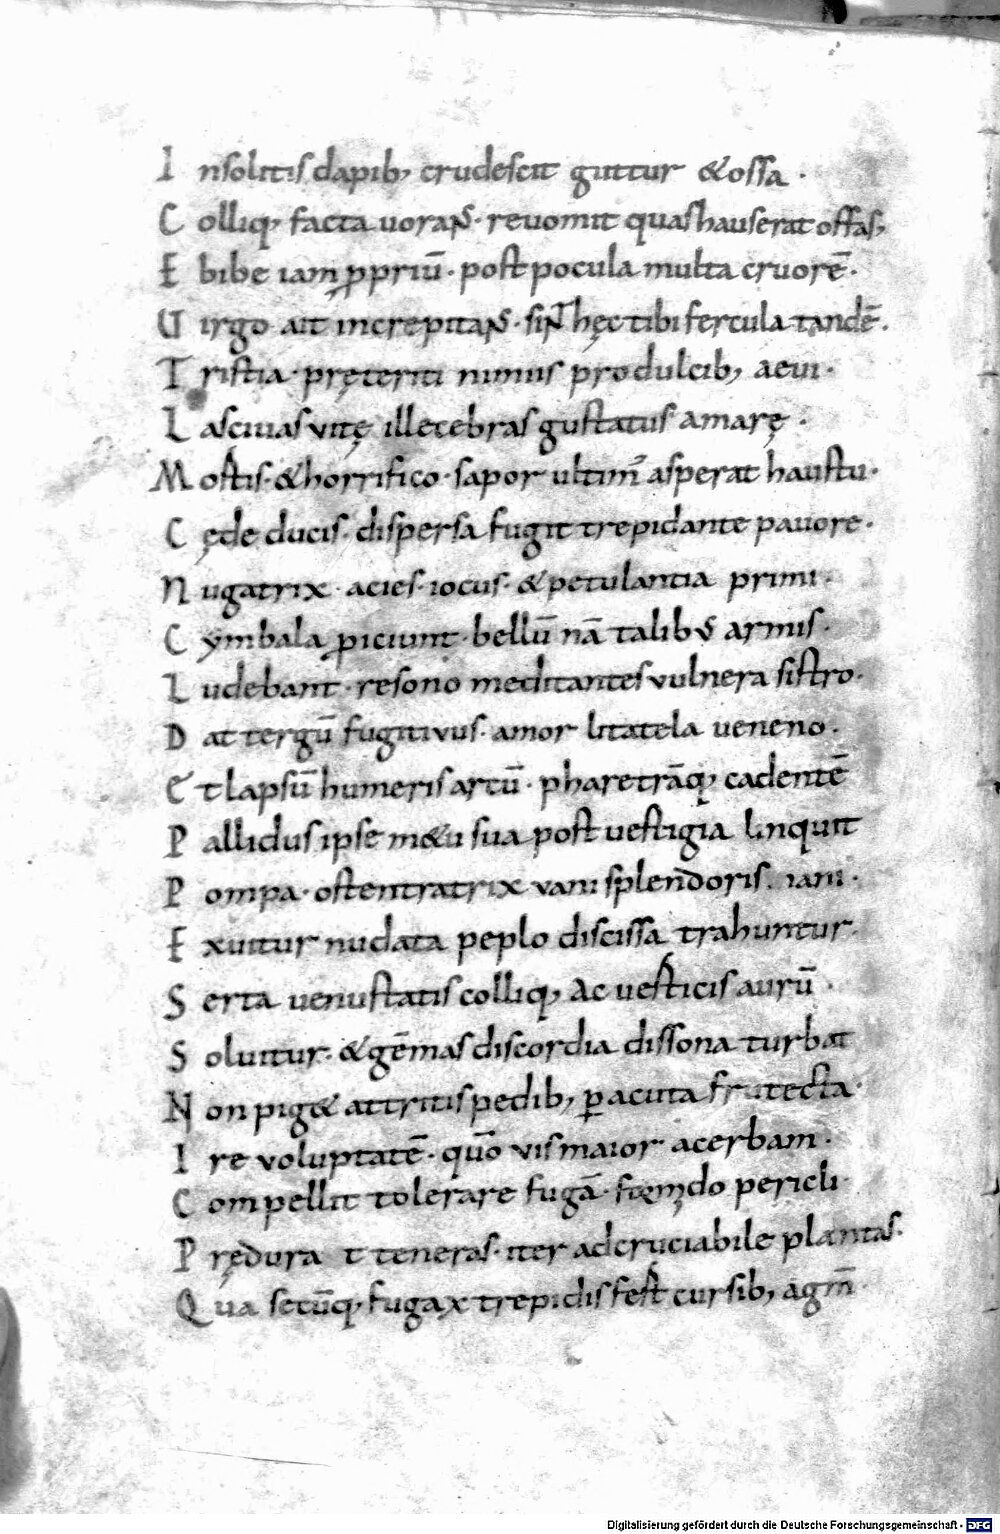 Insolitis dapib; crudescit guttur & ossa.
Colliq; facta uorans. reuomit quas hauserat offas;
Ebibe iam ꝓpriū. post pocula multa cruorē.
Uirgo ait increpitans. sint hęc tibi fercula tandē.
Tristia. pręteriti nimiis pro dulcib; aeui.
Lasciuas vitę illecebras gustatus amarę.
Mostis. & horrifico. sapor ultim᷒ asperat haustu.
Cęde ducis. dispersa fugit trepidante pauore.
Nugatrix. acies. iocus. & petulantia primi.
Cymbala ꝓiciunt. bellū nā talibus armis.
Ludebant. resono meditantes vulnera sistro.
Dat tergū fugitivus. amor lita tela ueneno.
Et lapsū humeris arcū. pharetrāq; cadentē
Pallidus ipse m&u sua post uestigia linquit
Pompa. ostentratrix vani splendoris. iani.
Exuitur nudata peplo discissa trahuntur.
Serta uenustatis colliq; Ac uesticis aurū.
Soluitur. & gēmas discordia dissona turbat
Non pig& attritis pedib; ꝑ acuta frutecta.
Ire voluptatē. quō vis maior acerbam.
Compellit tolerare fugā. formido pericli.
Prędura t teneras. iter ad cruciabile plantas.
Qua secūq; fugax trepidis fest cursib; agm̄